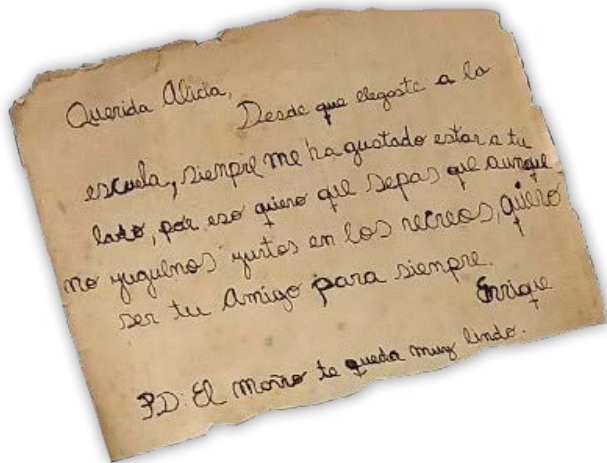 Querida Alicia,
Desde que llegaste a la
escuela, siempre me ha gustado estar a tu
lado, por eso quiero que sepas que aunque
no juguemos juntos en los recreos, quiero
ser tu amigo para siempre.
Enrique
PD: El moño te queda muy lindo.